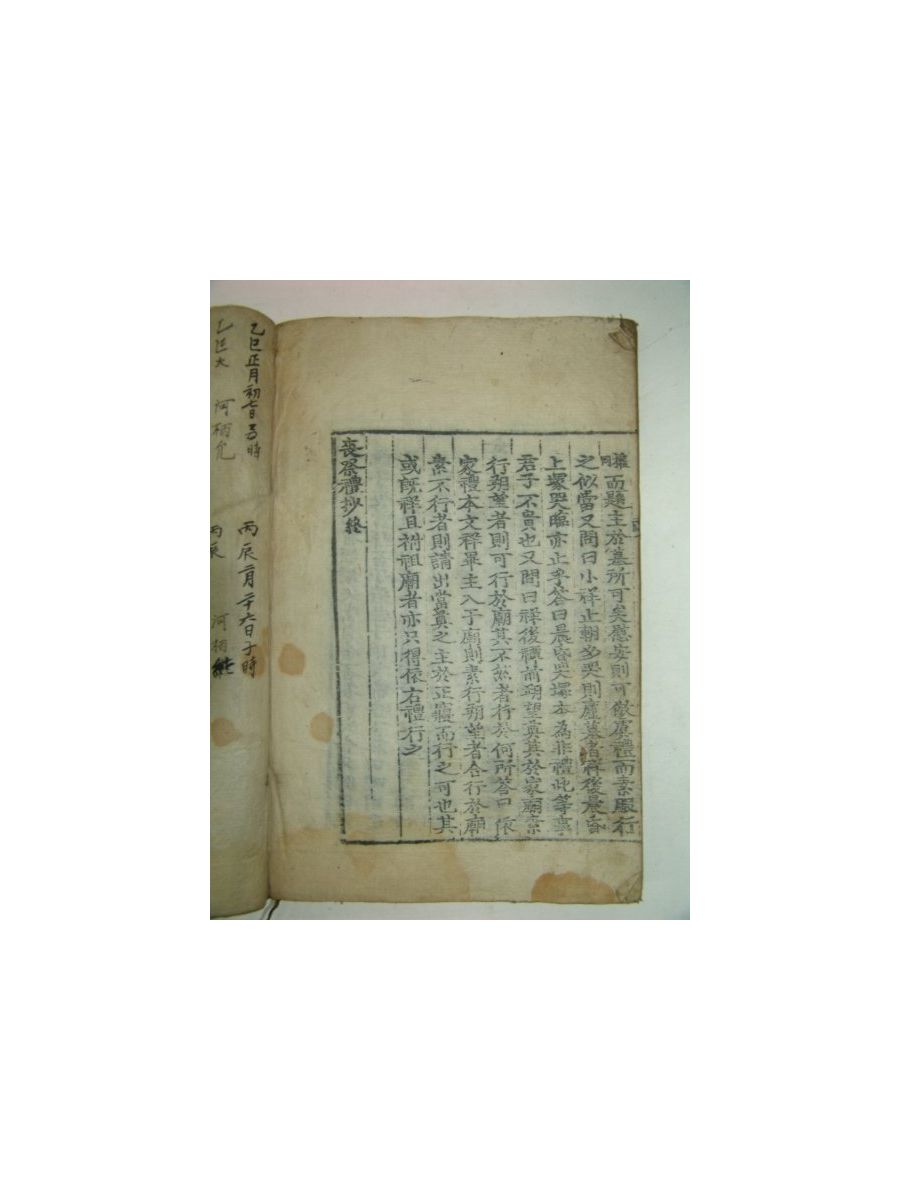 權同而題主於墓所可矣慰安則可倣虞禮而素服行
之似當又問曰小祥止朝夕哭則廬墓者祥後晨昏
上塚哭臨亦止乎答曰晨昏哭塚本為非禮此等事
君子不貴也又問曰祥後禫前朔望奠其於家廟素
行朔望者則可行於廟其不然者行於何所答曰依
家禮本文祥畢主入于廟則素行朔望者合行於廟
素不行者則請出當奠之主於正寢而行之可也其
或既祥且祔祖廟者亦只得依右禮行之
喪祭禮抄終
乙巳正月初七日 時
丙辰二月二十六日子時
乙巳 河相
丙辰 河相